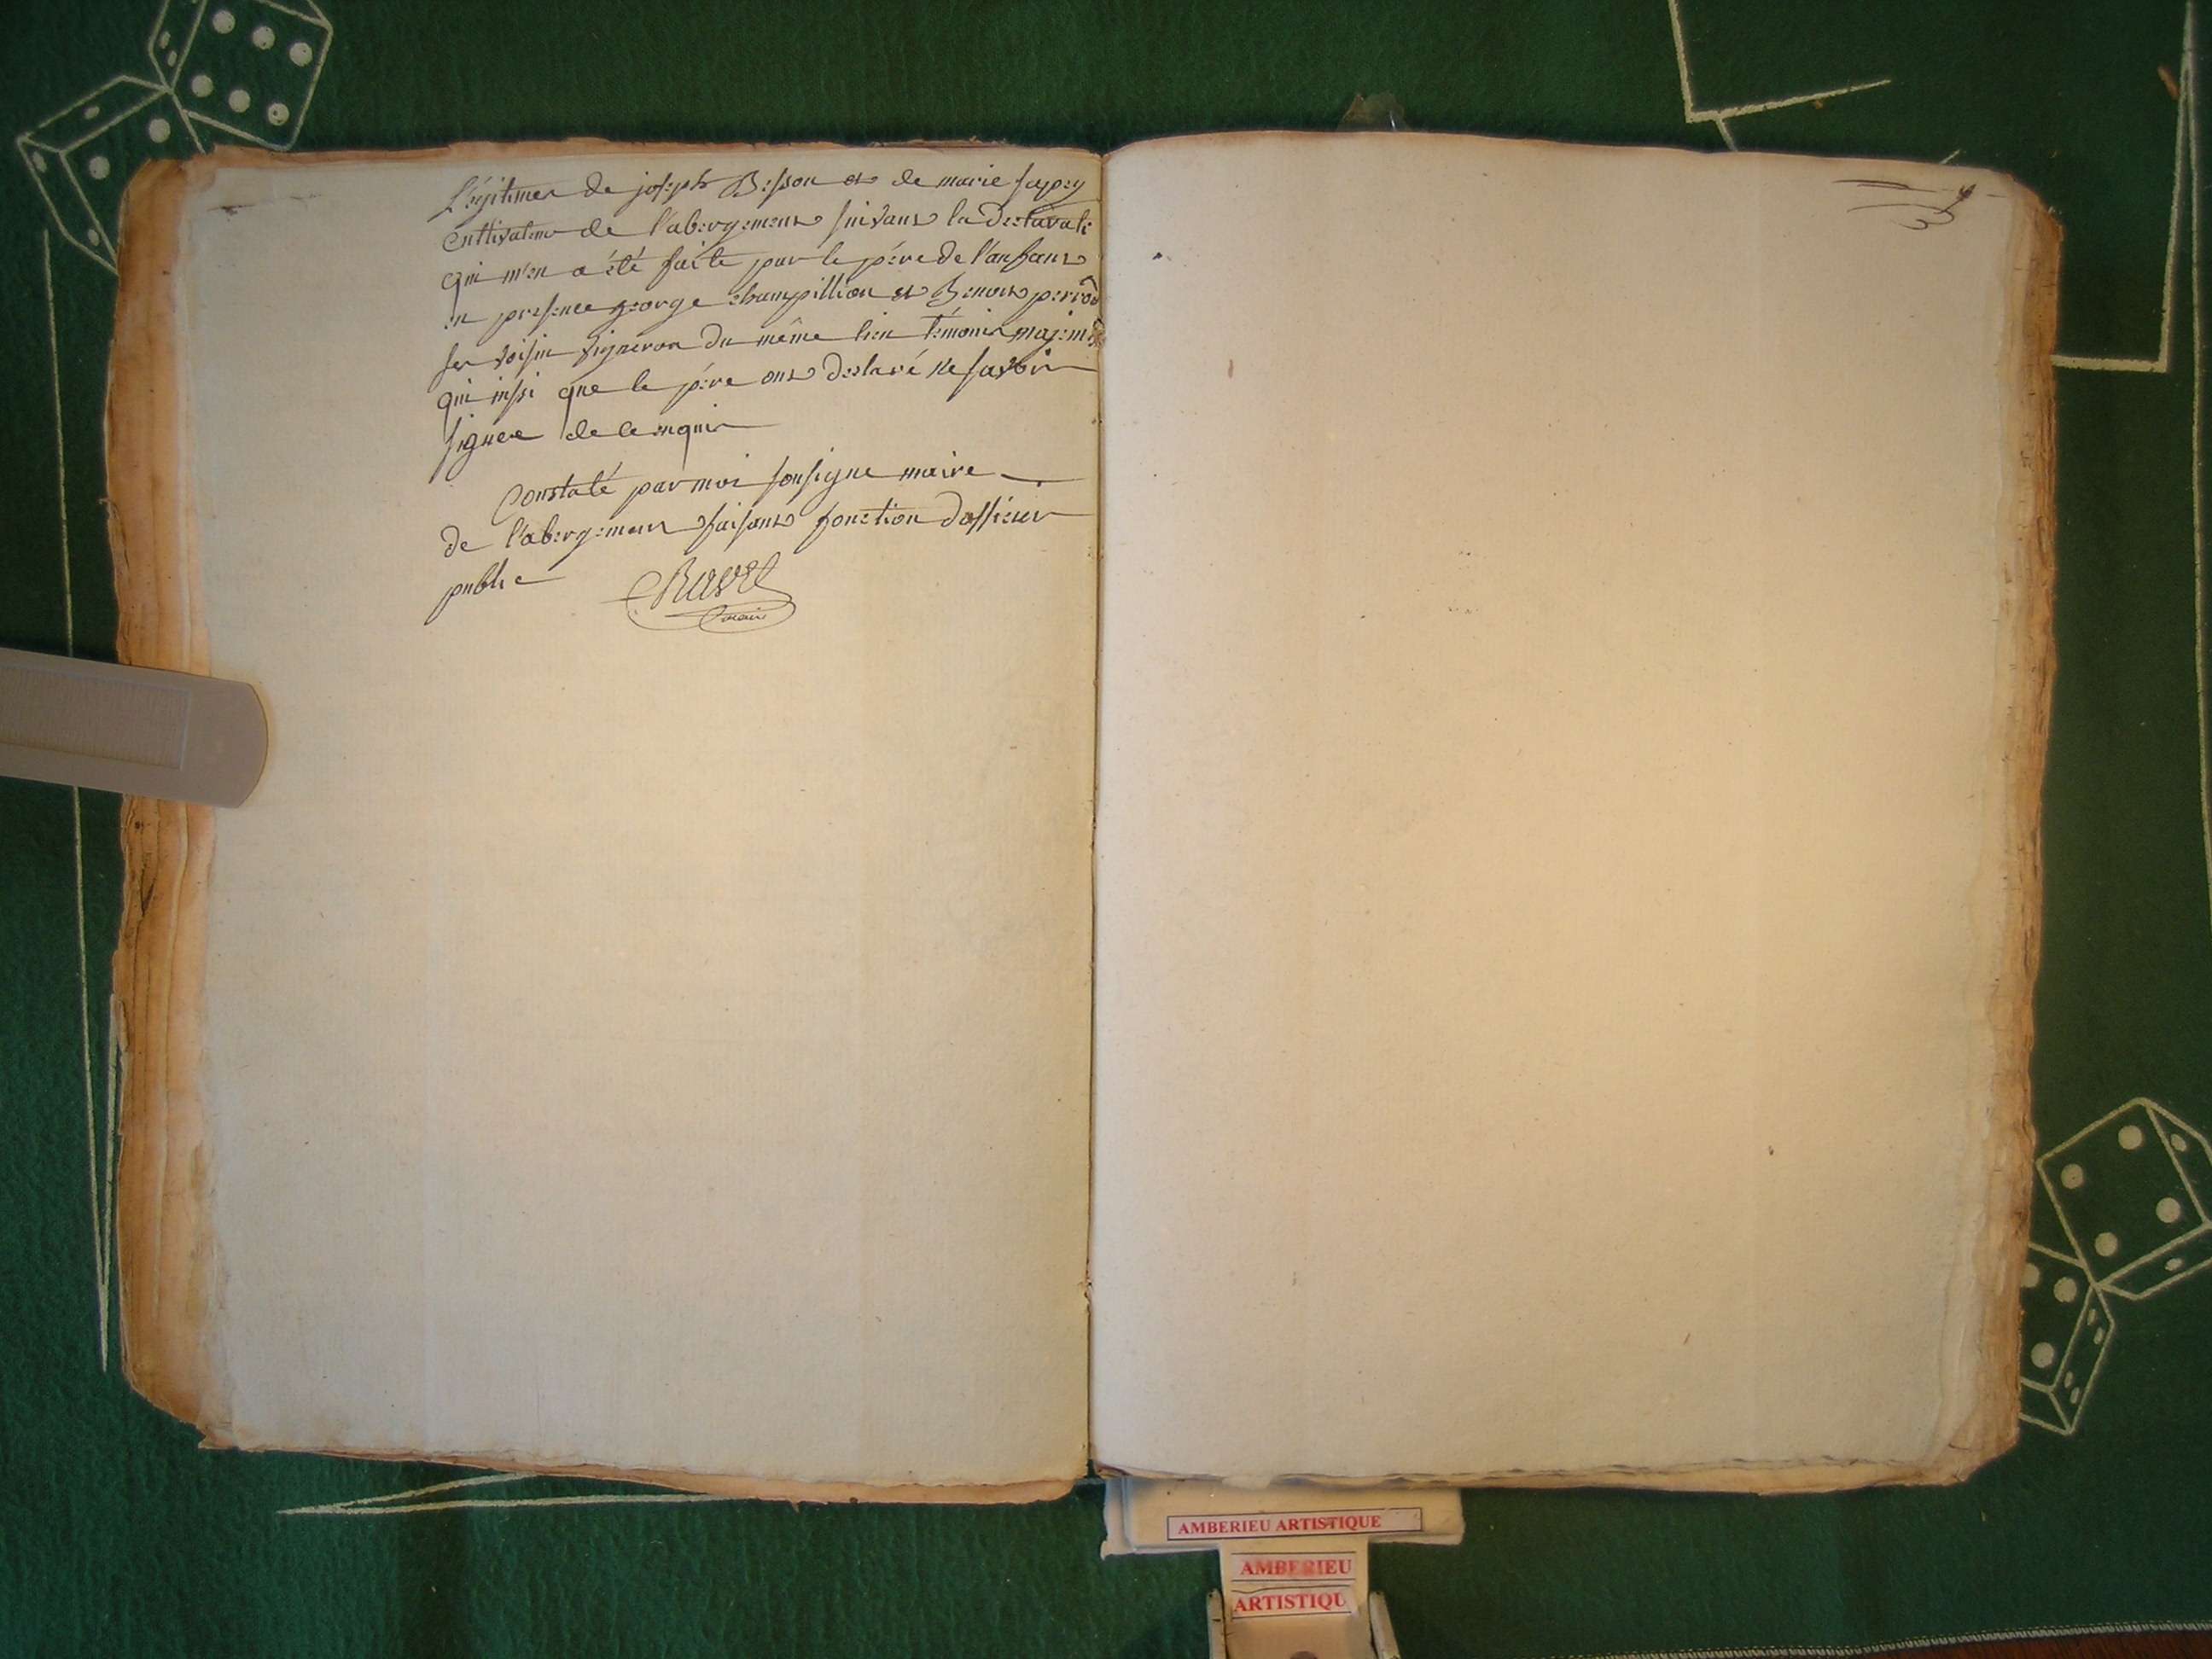 Légitimes de joseph Besson et de marie sapey
Cultivateur de l'abergement suivant la Declarati
qui m'en a été faite par le pére de l'anfant
en presence george champillion et Benoit perrod
ses voisin vigneron du même lieu témoins majeurs
qui inssi que le pére ont declaré ne savoir
signer de ce enquis
Constaté par moi sousigne maire
de l'abergement faisant fonction dofficier
public
Ravet
maire
AMBERIEU ARTISTIQUE
AMBERIEU
ARTISTIQU